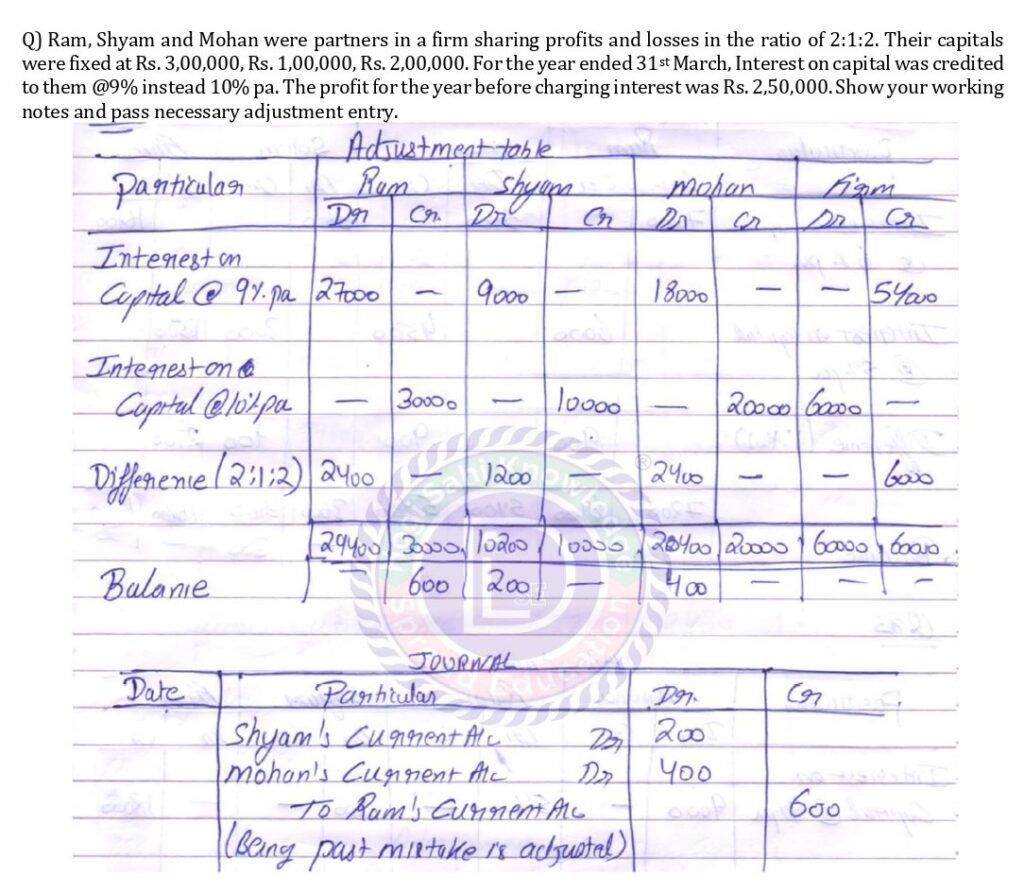 Q) Ram, Shyam and Mohan were partners in a firm sharing profits and losses in the ratio of 2:1:2. Their capitals
were fixed at Rs. 3,00,000, Rs. 1,00,000, Rs. 2,00,000. For the year ended 31st March, Interest on capital was credited
to them @9% instead 10% pa. The profit for the year before charging interest was Rs. 2,50,000. Show your working
notes and pass necessary adjustment entry.
Adjustment table
Particular Ram Shyam Mohan Firm
Dr Cr. Dr Cr Dr Cr Dr Cr
Interest on
Capital @ 9%.pa 27000 – 9000 – 18000 – – 54000
Interest on
Capital @10%pa – 30000 – 10000 – 20000 60000 –
Difference (2:1:2) 2400 – 1200 – 2400 – – 6000
29400 30000 10200 10000 20400 20000 60000 60000
Balance 600 200 – 400 – – –
JOURNAL
Date Particular Dr. Cr
Shyam's Current A/c Dr 200
Mohan's Current A/c Dr 400
To Ram's Current A/c 600
(Being past mistake is adjusted)